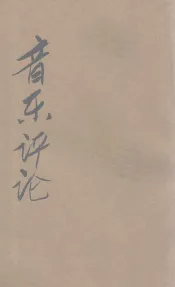 音乐评论